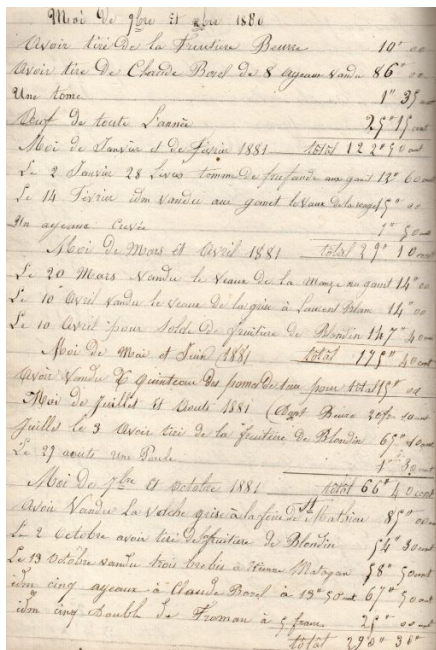 Moi de 9bre Et xbre 1880
Avoir tiré de la Fruitiere Beurre 10" 00
Avoir tiré de Claude Borel de 8 ayeaux vandu 86" 00
Une tome 1" 35 cent
Oeuf de toute L'année 25" 15 cent
Moi de Janvier et de Février 1881 total 122" 50 cent
Le 2 Janvier 28 Livres tomme 12" 60 cent
Le 14 Février idm vandu aux gomet 15" 00
Un ayeaux Crevée 1" 50 cent
Moi de Mars Et Avril 1881 total 29" 10 cent
Le 20 Mars vandu le veaux de la au gaint 14" 00
Le 10 Avril vandu le veaux de la grise à Laurent Blanc 14" 00
Le 10 Avril pour solde de fruitière de Blondin 147" 40 cent
Moi de Mai et Juin 1881 total 175" 40 cent
Avoir Vandu quinteaux des pomes de taire pour total 15" 00
Moi de Juillet Et Aoute 1881 ( Beure 20
Juillet le 3 Avoir tiré de la fruitière de Blondin 65" 10 cent
Le 27 aoute Une Poule 1" 30 cent
Moi de 7bre Et octobre 1881 total 66" 40 cent
Avoir Vandu La Vache grise à la foire de St 85" 00
Le 2 Octobre avoir tiré de fruitière de Blondin 54" 30 cent
Le 13 Octobre vandu trois brebis à 58" 50 cent
idm cinq ayeaux à Claude Borel à 13" 50 cent 67" 50 cent
idm cinq Double de Froman à 5 francs 25" 00 cent
total 290" 30"